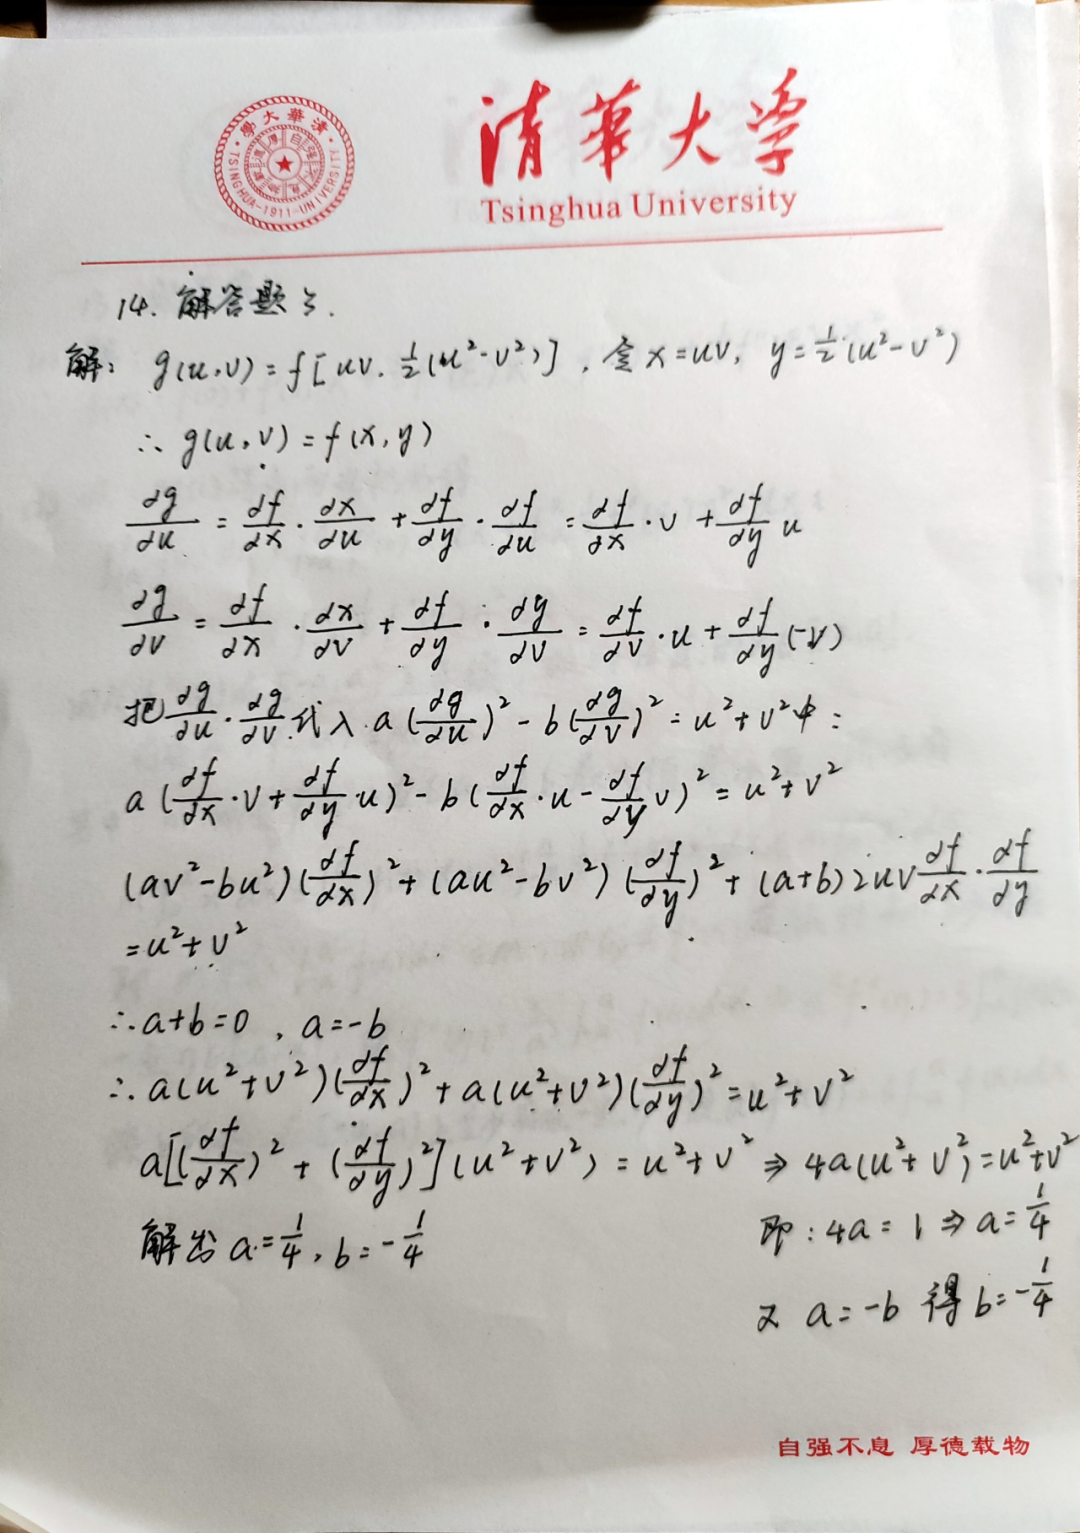 清華大学
Tsinghua University
清華大學
TSINGHUA-1911-UNIVERSITY
14. 解答题 3.
解: g(u,v)=f[uv, ½(u²-v²)], 令x=uv, y=½(u²-v²)
∴ g(u,v)=f(x,y)
∂g/∂u = ∂f/∂x · ∂x/∂u + ∂f/∂y · ∂f/∂u = ∂f/∂x · v + ∂f/∂y u
∂g/∂v = ∂f/∂x · ∂x/∂v + ∂f/∂y · ∂y/∂v = ∂f/∂v · u + ∂f/∂y (-v)
把 ∂g/∂u · ∂g/∂v 代入 a(∂g/∂u)² - b(∂g/∂v)² = u²+v² 中:
a(∂f/∂x · v + ∂f/∂y · u)² - b(∂f/∂x · u - ∂f/∂y v)² = u²+v²
(av²-bu²)(∂f/∂x)² + (au²-bv²)(∂f/∂y)² + (a+b)2uv ∂f/∂x · ∂f/∂y
=u²+v²
∴ a+b=0 , a=-b
∴ a(u²+v²)(∂f/∂x)² + a(u²+v²)(∂f/∂y)² = u²+v²
a[(∂f/∂x)² + (∂f/∂y)²](u²+v²) = u²+v² ⇒ 4a(u²+v²)=u²+v²
即: 4a=1 ⇒ a=¼
解出 a=¼, b=-¼
又 a=-b 得 b=-¼
自强不息 厚德载物